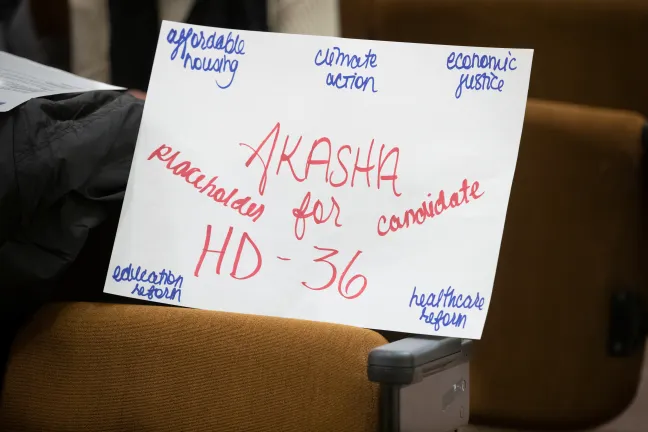 affordable
housing
climate
action
economic
justice
AKASHA
placeholder for candidate
HD-36
education
reform
healthcare
reform